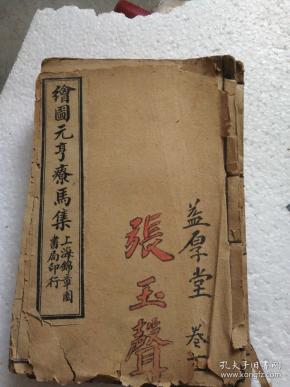 繪圖元亨療馬集
上海錦章圖
書局印行
益厚堂
張玉聲
孔夫子旧书网